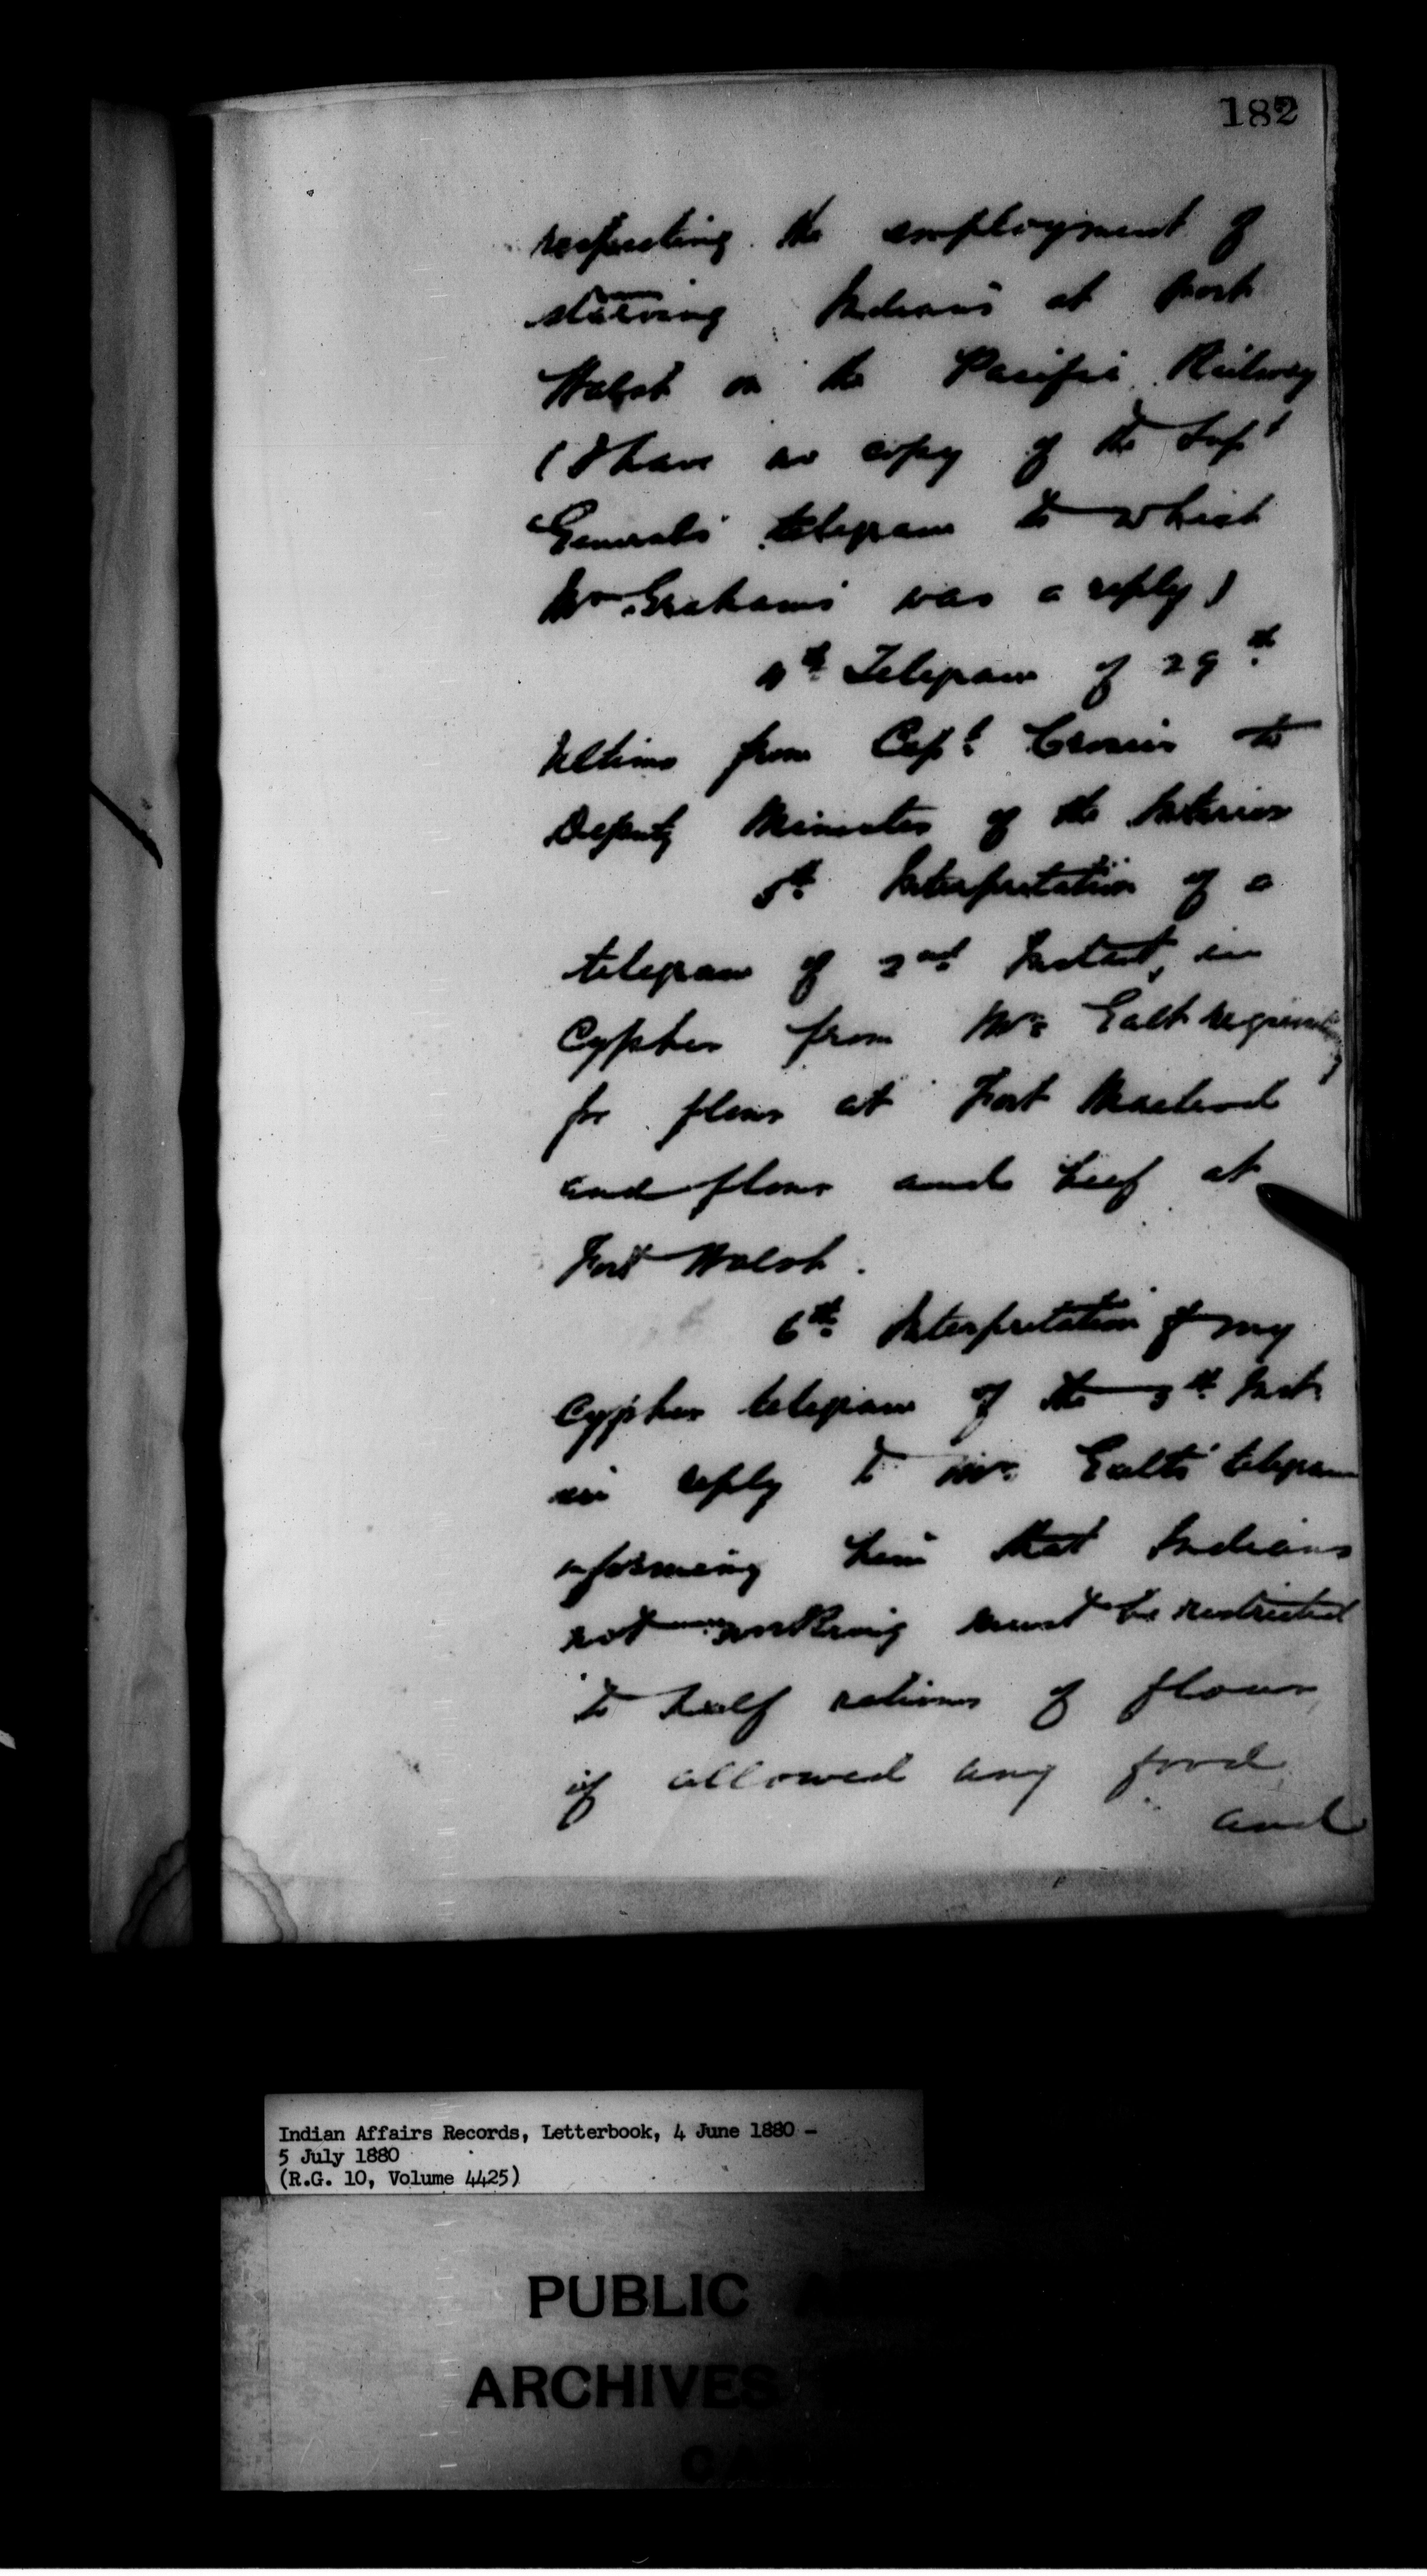 182
respecting the employment of
starving Indians at Fort
Walsh on the Pacific Railway
(I have no copy of the Supt
General's telegram to which
Mr Graham's was a reply)
4th Telegram of 29th
Ultimo from Capt Crozier to
Deputy Minister of the Interior
5th Interpretation of a
telegram of 2nd Instant, in
Cypher from Mr Galt
for flour at Fort Macleod
and flour and beef at
Fort Walsh.
6th Interpretation of my
Cypher telegram of the Inst
in reply to Mr Galt's telegram
informing him that Indians
not working must be restricted
to half rations of flour
if allowed any food
and
Indian Affairs Records, Letterbook, 4 June 1880 -
5 July 1880
(R.G. 10, Volume 4425)
PUBLIC
ARCHIVES